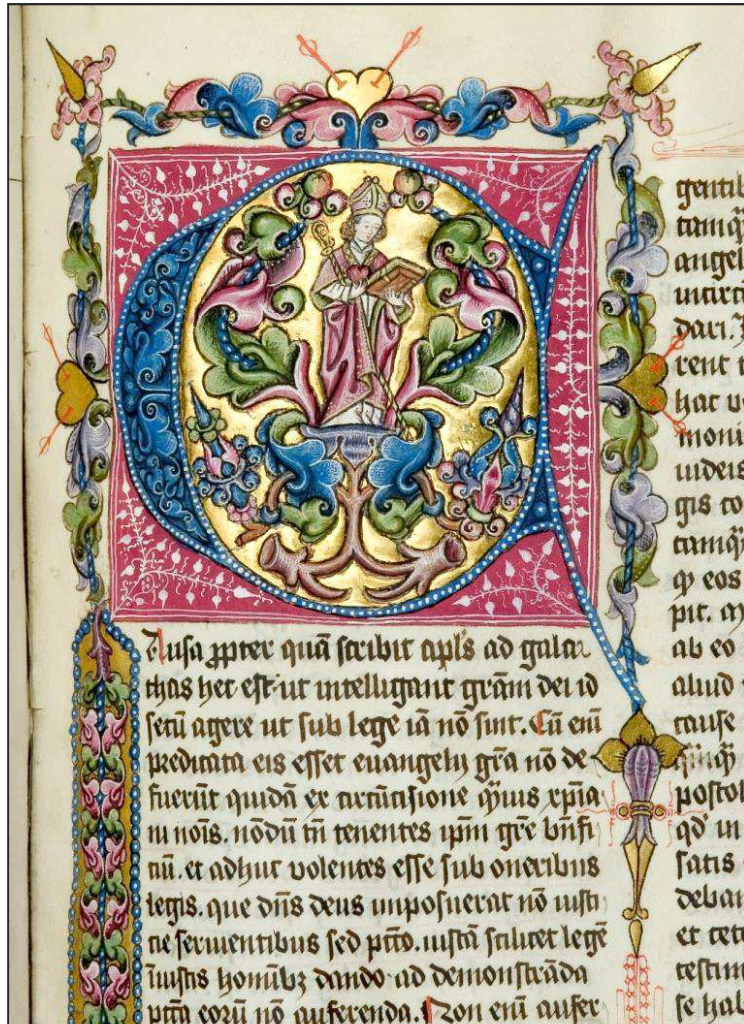 C
Ausa ꝓpter quā scribit apls ad galat
thas hec est. ut intelligant grām dei id
secū agere ut sub lege iā nō sint. Cū eni
predicata eis esset euangelii grā nō de
fuerūt quidā ex circūcisione
ni nois. nōdū tn tenentes ipm gre bnfi
ciū. et adhuc uolentes esse sub oneribus
legis. que dns deus imposuerat nō iusti
cie seruientibus sed pctō. iustā scilicet legē
iniustis hominibꝫ dando ad demonstrāda
pctā eorū nō auferenda. Non eni aufer
gentil
tamq̄
angel
dari.
rent
hac
moni
iudeis
gis co
tamq̄
ꝙ eos
pit.
ab eo
aliud
cause
postol
qd in
satis
debar
et cete
testim
se hab